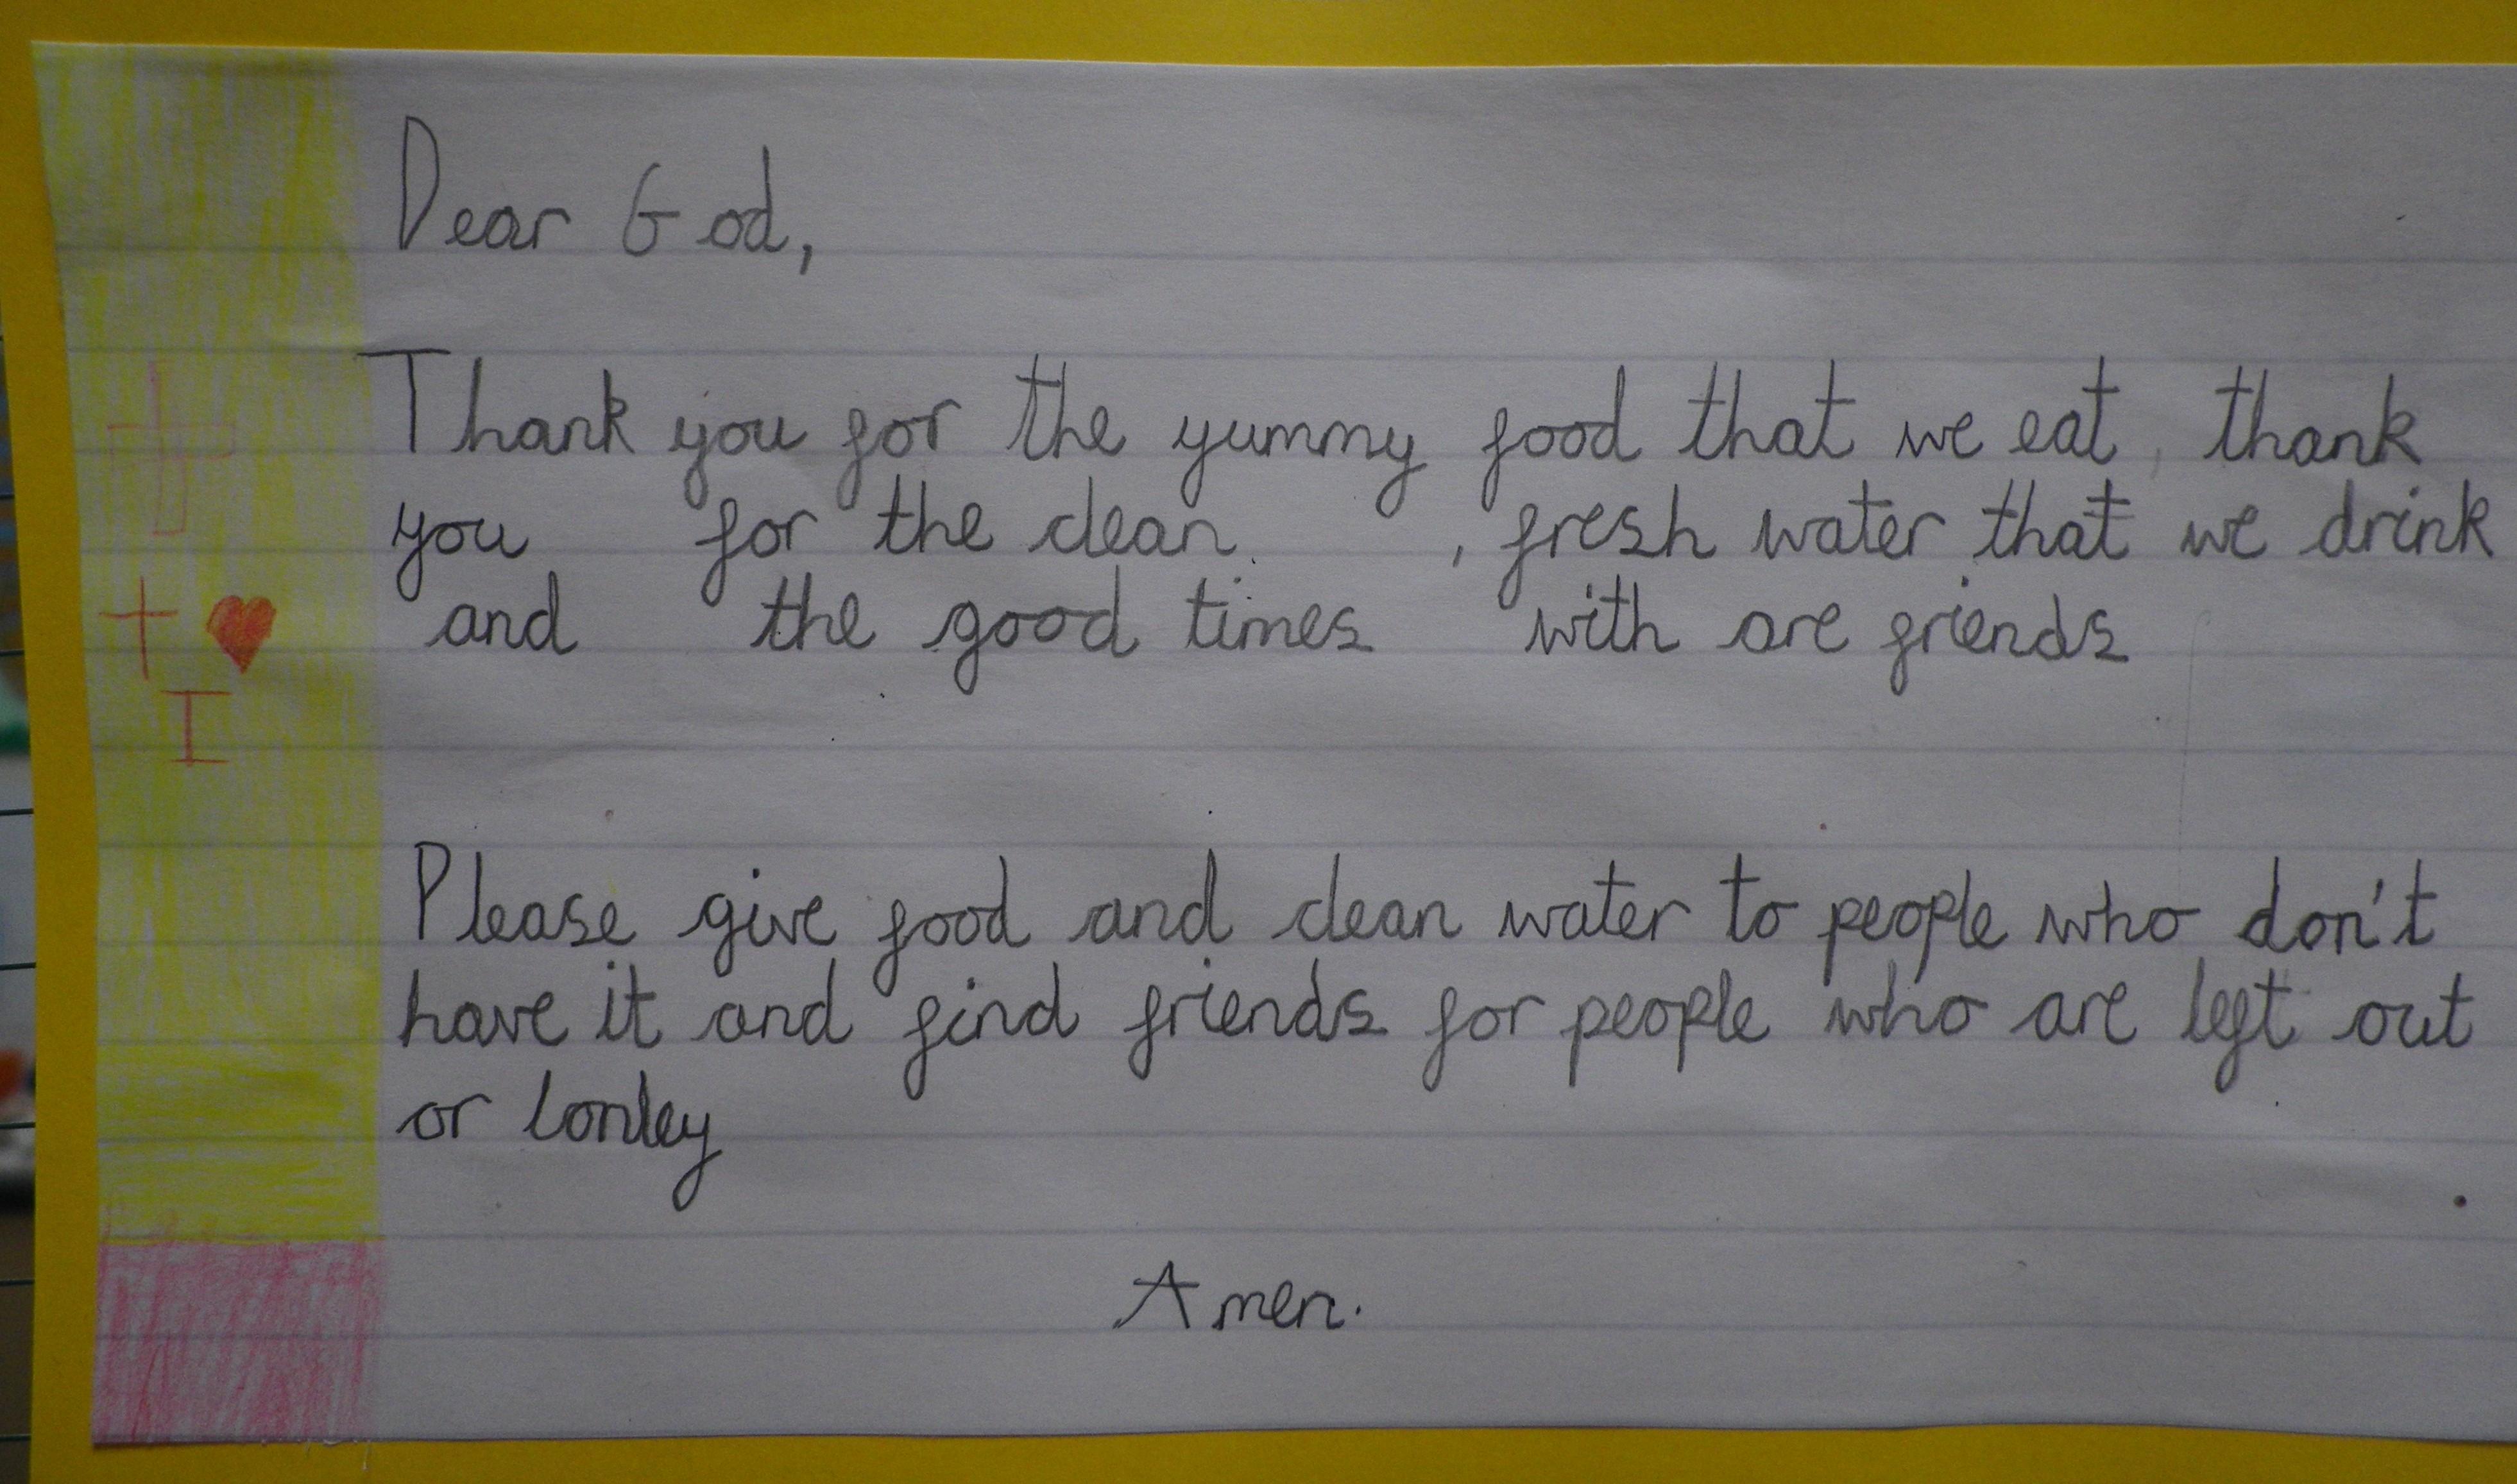 Dear God,
Thank you for the yummy food that we eat, thank
you for the clean, fresh water that we drink
and the good times with are friends
I
Please give food and clean water to people who don't
have it and find friends for people who are left out
or lonley
Amen.